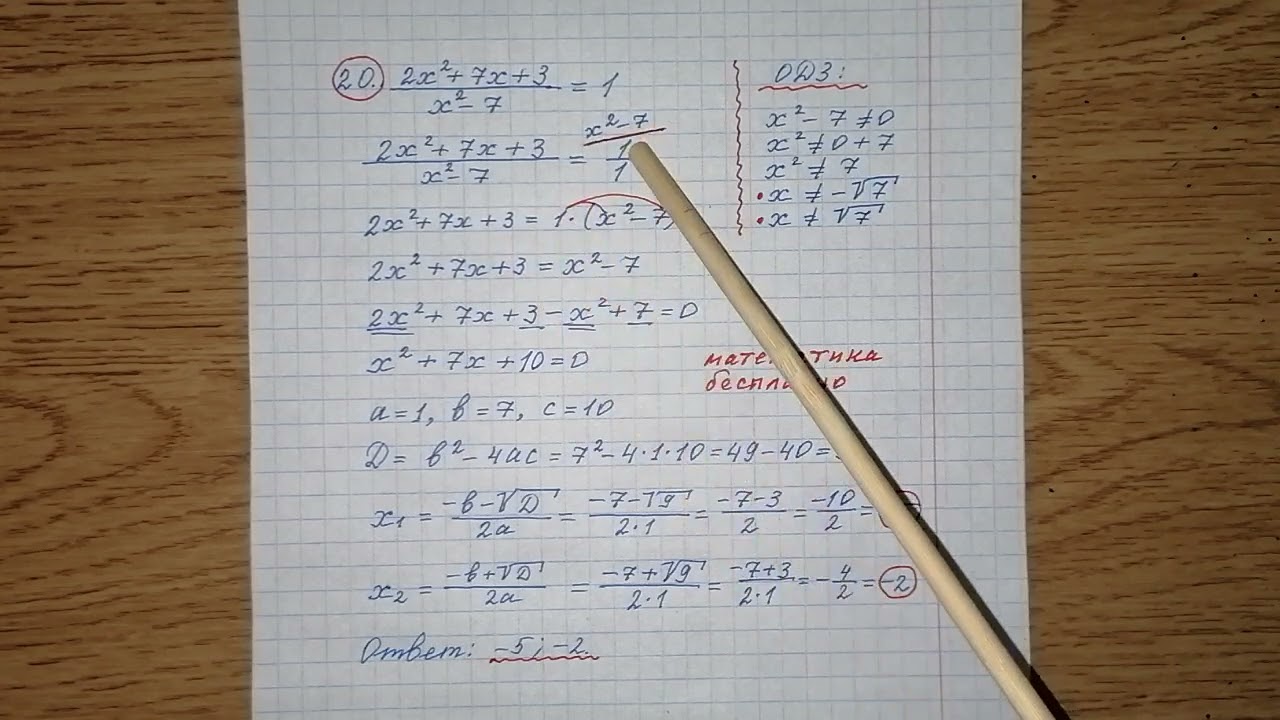 20. (2x²+7x+3)/(x²-7) = 1
(2x²+7x+3)/(x²-7) = 1/1 x²-7
2x²+7x+3 = 1·(x²-7)
2x²+7x+3 = x²-7
2x²+7x+3-x²+7=0
x²+7x+10=0
a=1, b=7, c=10
D= b²-4ac = 7²-4·1·10=49-40=
x₁ = (-b-√D)/(2a) = (-7-√9)/(2·1) = (-7-3)/2 = (-10)/2 =
x₂ = (-b+√D)/(2a) = (-7+√9)/(2·1) = (-7+3)/(2·1) = -4/2 = -2
Ответ: -5; -2
ОДЗ:
x²-7≠0
x²≠0+7
x²≠7
• x≠-√7
• x≠√7
математика
бесплатно